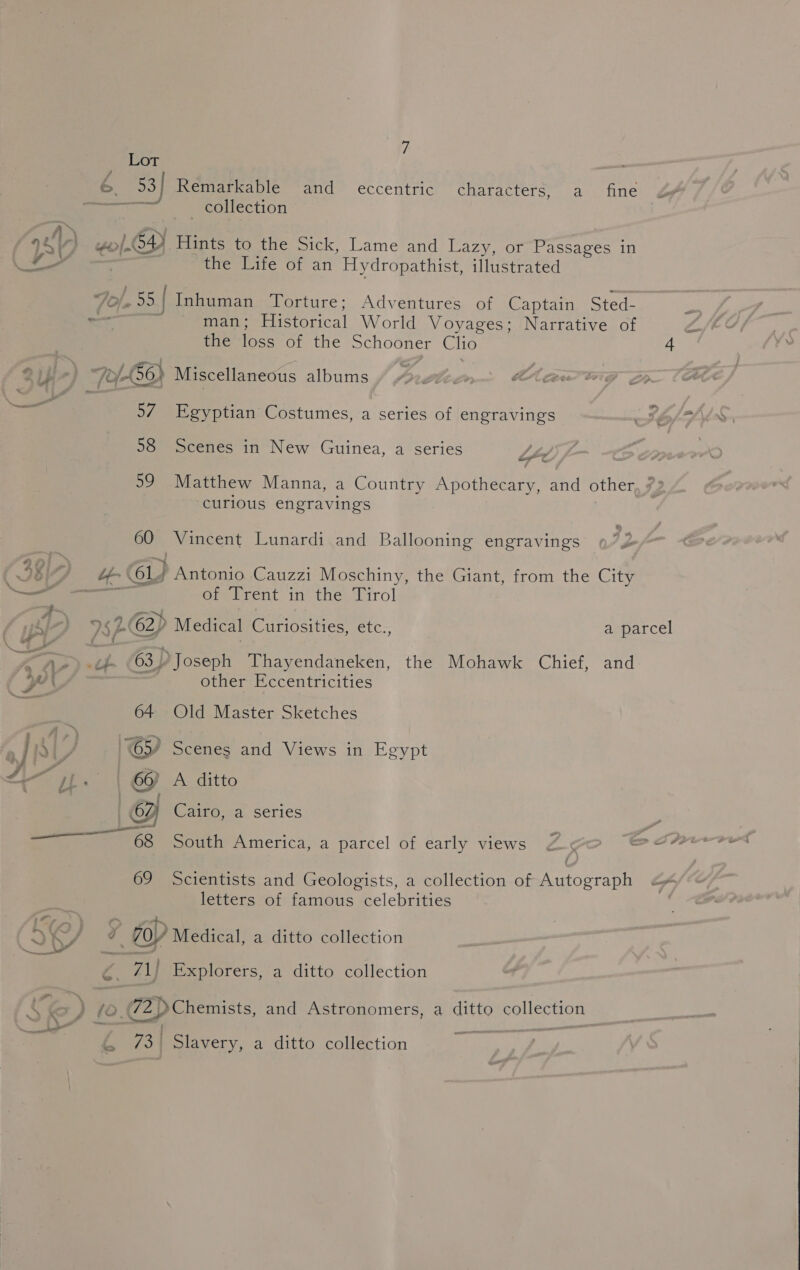 7
Lot
53 Remarkable and eccentric characters, a fine
collection
54 Hints to the Sick, Lame and Lazy, or Passages in
the Life of an Hydropathist, illustrated
55 Inhuman Torture; Adventures of Captain Sted-
man; Historical World Voyages; Narrative of
the loss of the Schooner Clio 4
56 Miscellaneous albums
57 Egyptian Costumes, a series of engravings
58 Scenes in New Guinea, a series
59 Matthew Manna, a Country Apothecary, and other
curious engravings
60 Vincent Lunardi and Ballooning engravings
61 Antonio Cauzzi Moschiny, the Giant, from the City
of Trent in the Tirol
62 Medical Curiosities, etc., a parcel
63 Joseph Thayendaneken, the Mohawk Chief, and
other Eccentricities
64 Old Master Sketches
65 Scenes and Views in Egypt
66 A ditto
67 Cairo, a series
68 South America, a parcel of early views
69 Scientists and Geologists, a collection of Autograph
letters of famous celebrities
70 Medical, a ditto collection
71 Explorers, a ditto collection
72 Chemists, and Astronomers, a ditto collection
73 Slavery, a ditto collection